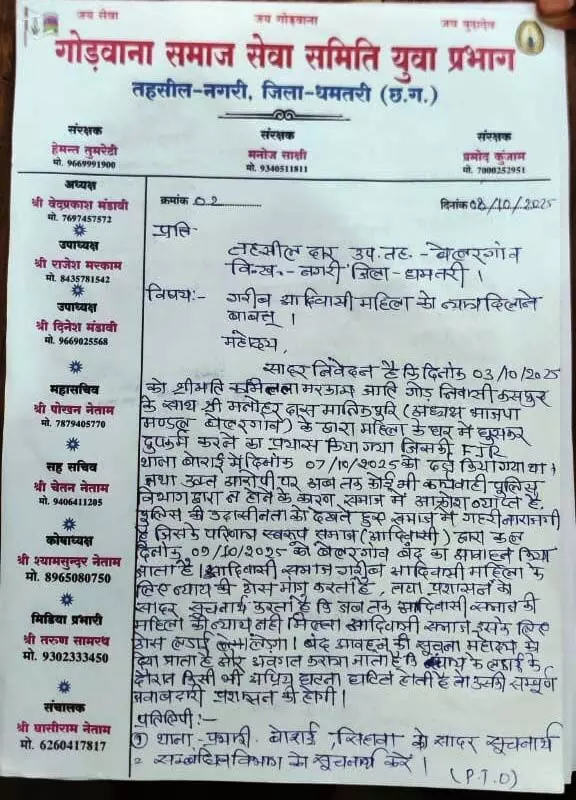 जय सेवा
जय गोंडवाना
जय बुढ़ादेव
गोंड़वाना समाज सेवा समिति युवा प्रभाग
तहसील-नगरी, जिला-धमतरी (छ.ग.)
संरक्षक
हेमन्त तुमरेटी
मो. 9669991900
संरक्षक
मनोज साक्षी
मो. 9340511811
संरक्षक
प्रमोद कुंजाम
मो. 7000252951
अध्यक्ष
श्री वेदप्रकाश मंडावी
मो. 7697457572
उपाध्यक्ष
श्री राजेश मरकाम
मो. 8435781542
उपाध्यक्ष
श्री दिनेश मंडावी
मो. 9669025568
महासचिव
श्री पोखन नेताम
मो. 7879405770
सह सचिव
श्री चेतन नेताम
मो. 9406411205
कोषाध्यक्ष
श्री श्यामसुन्दर नेताम
मो. 8965080750
मिडिया प्रभारी
श्री तरुण सामरथ
मो. 9302333450
संचालक
श्री घासीराम नेताम
मो. 6260417817
क्रमांक 02
दिनांक 08/10/2025
प्रति
तहसीलदार उप.तह.- बेलरगांव
वि.ख.- नगरी जिला-धमतरी ।
विषय:- गरीब आदिवासी महिला को न्याय दिलाने
बाबत् ।
महोदय,
सादर निवेदन है कि दिनांक 03/10/2025
को श्रीमति मरकाम जाति गोड़ निवासी
के साथ श्री मनोहर दास मानिकपुरि (अध्यक्ष भाजपा
मण्डल बेलरगांव) के द्वारा महिला के घर में घुसकर
दुष्कर्म करने का प्रयास किया गया जिसकी FIR
थाना बोराई में दिनांक 07/10/2025 को दर्ज किया गया था ।
तथा उक्त आरोपी पर अब तक कोई भी कार्यवाही पुलिस
विभाग द्वारा न होने के कारण समाज में आक्रोश व्याप्त है,
पुलिस की उदासीनता को देखते हुए समाज में गहरी नाराजगी
है जिसके परिणाम स्वरूप समाज (आदिवासी) द्वारा कल
दिनांक 09/10/2025 को बेलरगांव बंद का आवाहन किया
जाता है । आदिवासी समाज गरीब आदिवासी महिला के
लिए न्याय की मांग करता है, तथा प्रशासन को
सादर सूचनार्थ करता है कि जब तक आदिवासी समाज की
महिला को न्याय नही मिलता आदिवासी समाज इसके लिए
लड़ाई लड़ेगा । बंद आवहन की सूचना महोदय को
दिया जाता है और अवगत कराया जाता है कि न्याय के लड़ाई के
दौरान किसी भी अप्रिय घटना घटित होती है तो उसकी सम्पूर्ण
जवाबदारी प्रशासन की होगी ।
प्रतिलिपी:-
① थाना - प्रभारी बोराई, सिहावा को सादर सूचनार्थ
2 सम्बंधित विभाग को सूचनार्थ करें ।
(P.T.O)